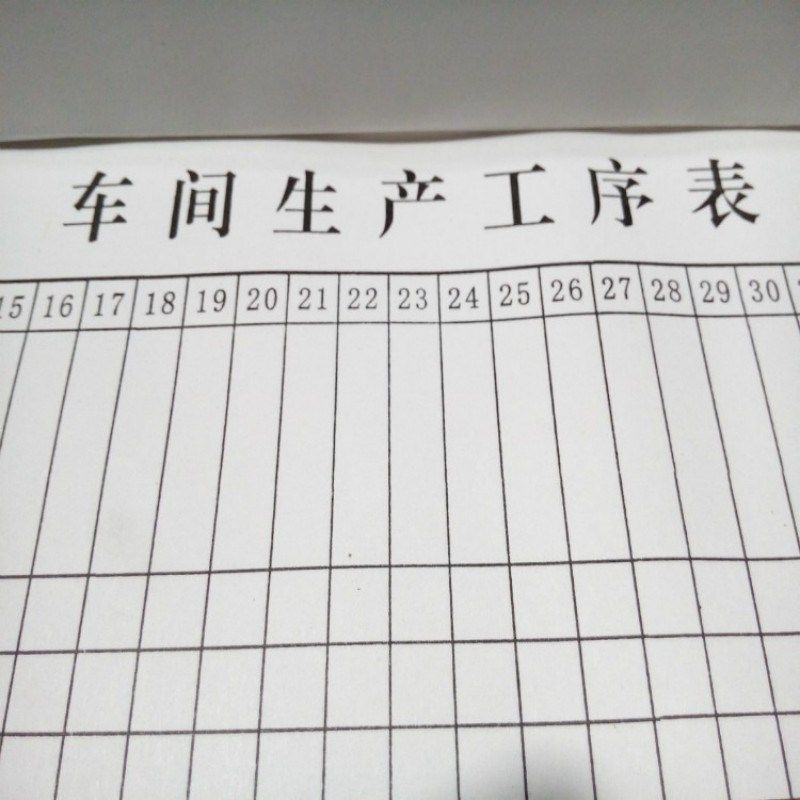 车间生产工序表
15 16 17 18 19 20 21 22 23 24 25 26 27 28 29 30